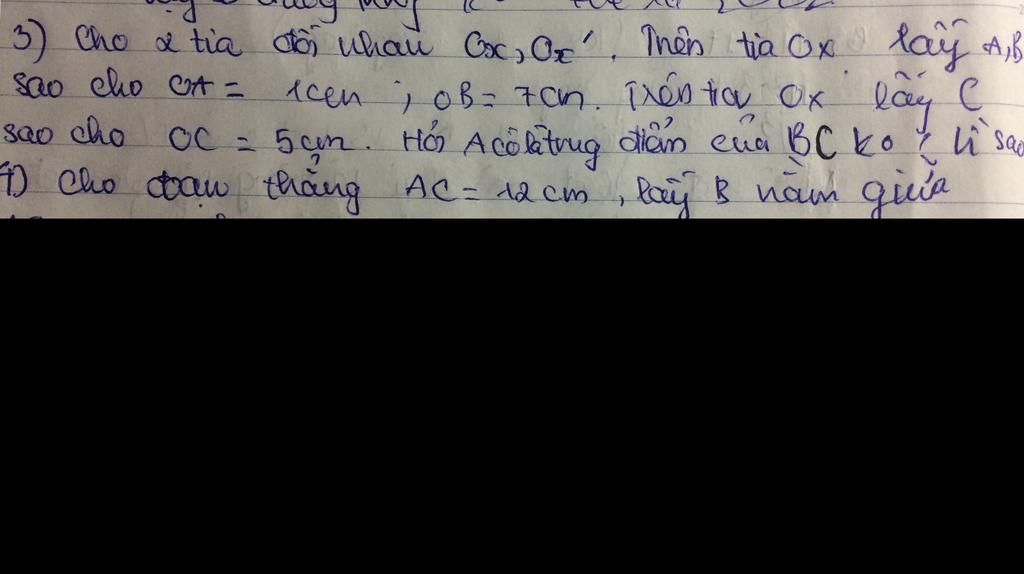 3) Cho 2 tia đối nhau Ox, Ox'. Trên tia Ox lấy A,B
sao cho OA = 1cm ; OB = 7cm. Trên tia Ox lấy C
sao cho OC = 5cm. Hỏi A có là trug điểm của BC ko ? Vì sao
4) Cho đoạn thẳng AC = 12 cm, lấy B nằm giữa